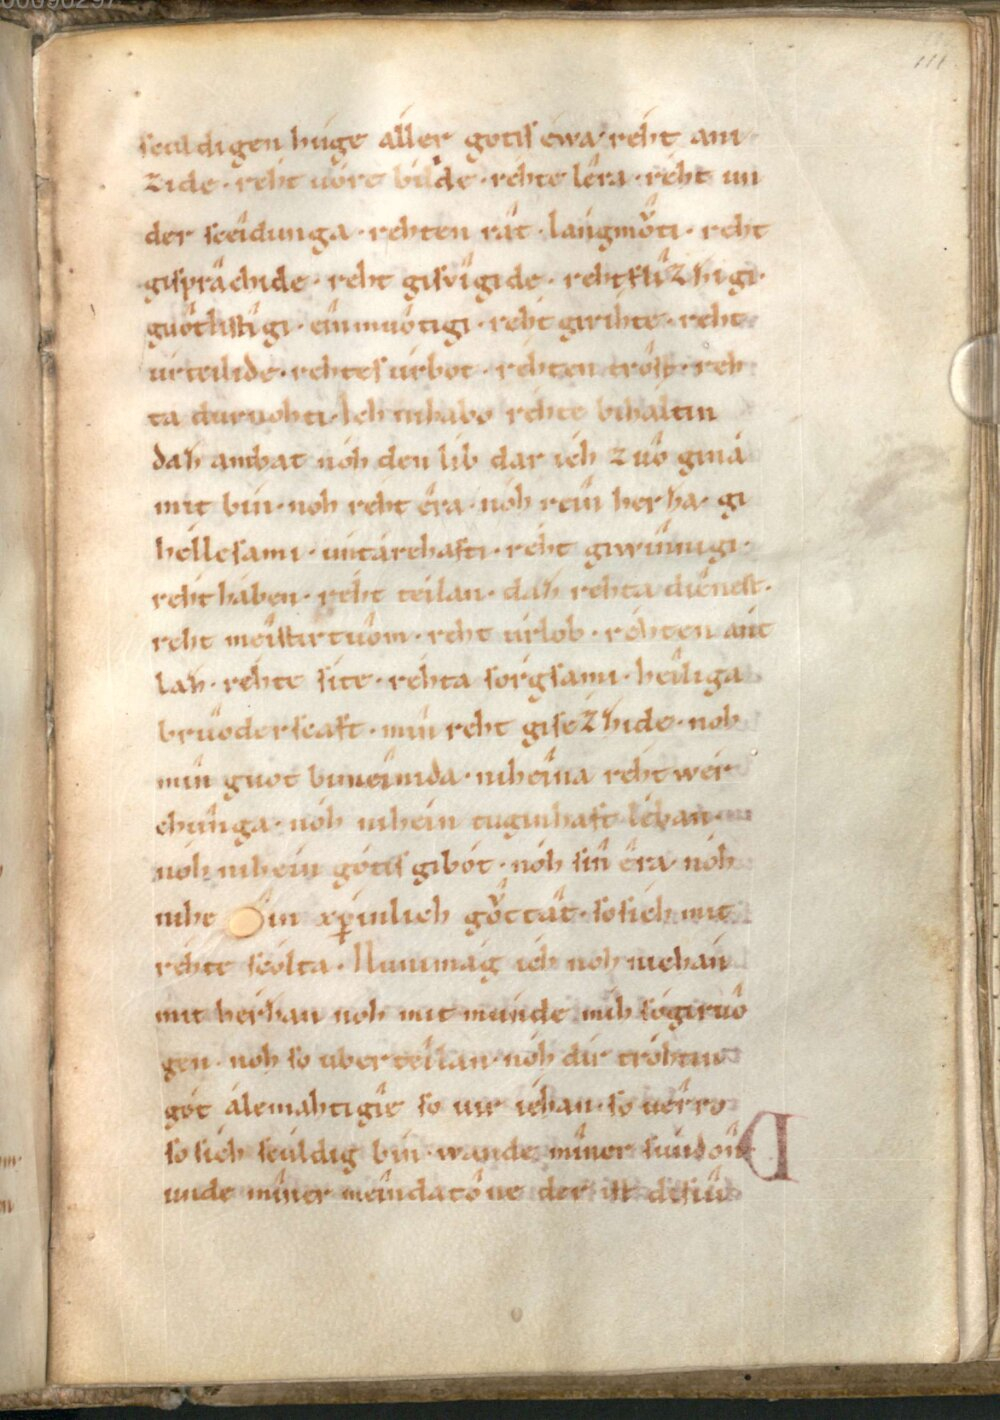 111
sculdigen huge aller gotis éwa· reht ani
zide· reht uore bilde· rehte lêra· reht un
der sceidunga· rehten rât· langmŏ́ti· reht
gisprâchide· reht gisuîgide· reht flîzhigi·
guôtlistîgi· einmuôtigi· reht girihte· reht
urteilide· rehtes urbot· rehten trôst· reh
ta duruohti· Ich nihabo rehte bihaltin
daz ambat noh den lib dar ich zuô gina
mit bin· noh reht êra· noh rein herha· gi
hellesami· untarehafti· reht giwinnigi·
reht haben· reht teilan· daz rehta diênest·
reht meistirtuôm· reht urlob· rehten ant
laz· rehte site· rehta sorgsami· heiliga
bruoderscaft· min reht gisezhide· noh
min guot bimeinida· niheina reht wer
chunga· noh nihein tuginhaft leban·
noh nihein gotis gibot· noh sin êra noh
nihe in xp̄inlich gŏ́ttât· so sich mit
rehte scolta· Nunimag ich noh nichan
mit herhan noh mit munde mih so giruô
gen· noh so uberteilan· noh dir trohtin
got alemahtigie so uir iehan· so uêrro
so sich sculdig bin· wande mîner sundôn
unde mîner meindatône der ist desiu
D